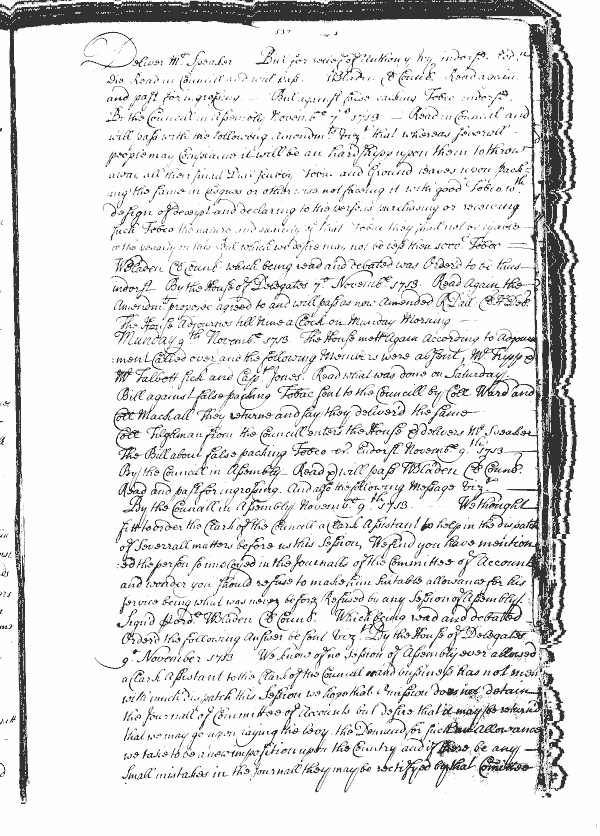 Deliver Mr Speaker Bill for releif of Anthony Ivy indorsd.
die Read in Councill and will pass. WBladen Cl Counl. Read again
and past for ingrossing. Bill against false packing Tobco indorst.
By the Councill in Assembly Novembr 7th 1713 — Read in Councill and
will pass with the following amendmts vizt that whereas severall
people may Complaine it will be an hardshipp upon them to throw
away all their small and Ground leaves upon pack-
ing the same in Cagues or otherwise not faceing it with good Tobco wth
design of deceipt and declaring to the person purchasing or receiving
such Tobco the nature and quality of that Tobco they shall not
to the penalty in this Bill which we desire may not be less then Tobco
WBladen Cl Counl which being read and debated was Orderd to be thus
indorst By the House of Delegates 7r Novembr 1713. Read Again the
Amendmt proposed agreed to and will pass as now Amended R Dall Cl H Del
The House Adjournes till nine a Clock on Munday Morning —
Munday 9th Novembr 1713. The House mett Again According to Adjourn
ment Called over and the following Members were absent, Mr Tripp &
Mr Talbott sick and Capt Jones. Read what was done on Saturday
Bill against false packing Tobac sent to the Councill by Coll Ward and
Coll Mackall They returne and say they deliverd the same
Coll Tilghman from the Councill enters the House & delivers Mr Speaker
The Bill about false packing Tobco &c. Endorst Novembr 9th 1713
By the Councill in Assembly — Read & will pass WBladen Cl Counl.
Read and past for ingrossing. And also the following Message vizt
By the Councill in Assembly Novembr 9th 1713 We thought
fitt to order the Clark of the Councill a Clark Assistant to help in the dispatch
of Severall matters before us this Session, We find you have mention
ed the person so imployed in the Journalls of the Committee of Accounts
and wonder you should refuse to make him suitable allowance for his
service being what was never before Refused by any Session of Assembly.
Signd p Ordr WBladen Cl Counl. Which being read and debated
Orderd the following Answer be sent vizt By the House of Delegates
9r November 1713 We know of no Session of Assembly ever allowed
a Clark Assistant to the Clark of the Councill and business has not mett
with much dispatch this Session we hope that Omission does not detain
the Journall of Committee of Accounts but desire that it may be returnd
that we may go upon laying the levy. the Demand for such an Allowance
we take to be a new imposition upon the Country and if there be any
small mistakes in the Journall they may be rectifyed by that Comittee